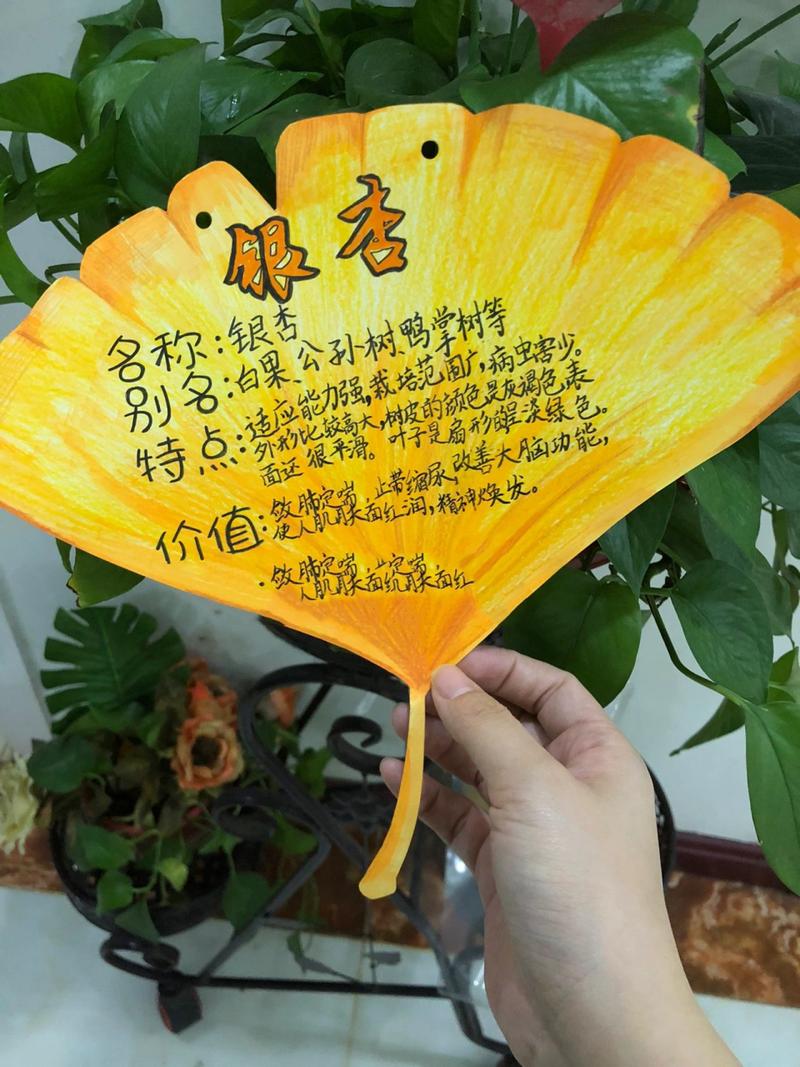 银杏
名称:银杏
别名:白果、公孙树、鸭掌树等
特点:适应能力强,栽培范围广,病虫害少。
外形比较高大,树皮的颜色是灰褐色,表
面还很平滑。叶子是扇形的呈淡绿色。
价值:敛肺定喘,止带缩尿,改善大脑功能,
使人肌肤面红润,精神焕发。
敛肺定喘,止定喘
人肌肤面红肤面红